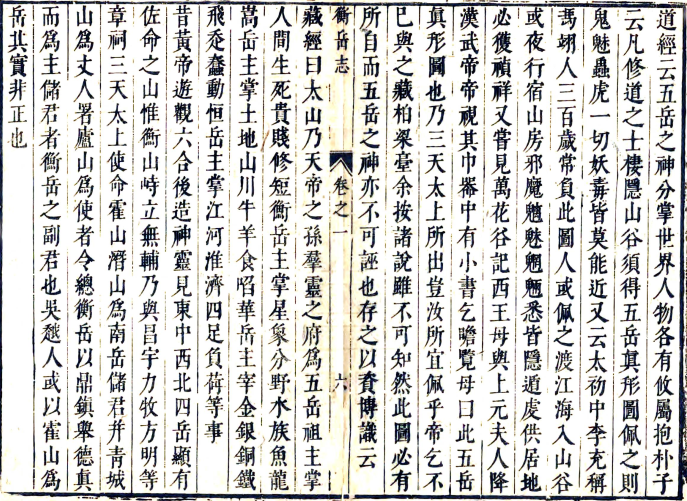 道經云五岳之神分掌世界人物各有攸屬抱朴子
云凡修道之士棲隱山谷須得五岳眞形圖佩之則
鬼魅蟲虎一切妖毒皆莫能近又云太初中李充稱
馮翊人三百歲常負此圖人或佩之渡江海入山谷
或夜行宿山房邪魔魑魅魍魎悉皆隱遁處供居地
必獲禎祥又嘗見萬花谷記西王母與上元夫人降
漢武帝帝視其巾器中有小書乞瞻覽母曰此五岳
眞形圖也乃三天太上所出豈汝所宜佩乎帝乞不
已與之藏柏梁臺余按諸說雖不可知然此圖必有
所自而五岳之神亦不可誣也存之以資博識云
衡岳志 卷之一 六
藏經曰太山乃天帝之孫羣靈之府爲五岳祖主掌
人間生死貴賤修短衡岳主掌星象分野水族魚龍
嵩岳主掌土地山川牛羊食啗華岳主宰金銀銅鐵
飛走蠢動恒岳主掌江河淮濟四足負荷等事
昔黃帝遊觀六合後造神靈見東中西北四岳顯有
佐命之山惟衡山峙立無輔乃與昌宇力牧方明等
章祠三天太上使命霍山潛山爲南岳儲君并青城
山爲丈人署廬山爲使者令總衡岳以鼎鎮舉德眞
而爲主儲君者衡岳之副君也吳越人或以霍山爲
岳其實非正也